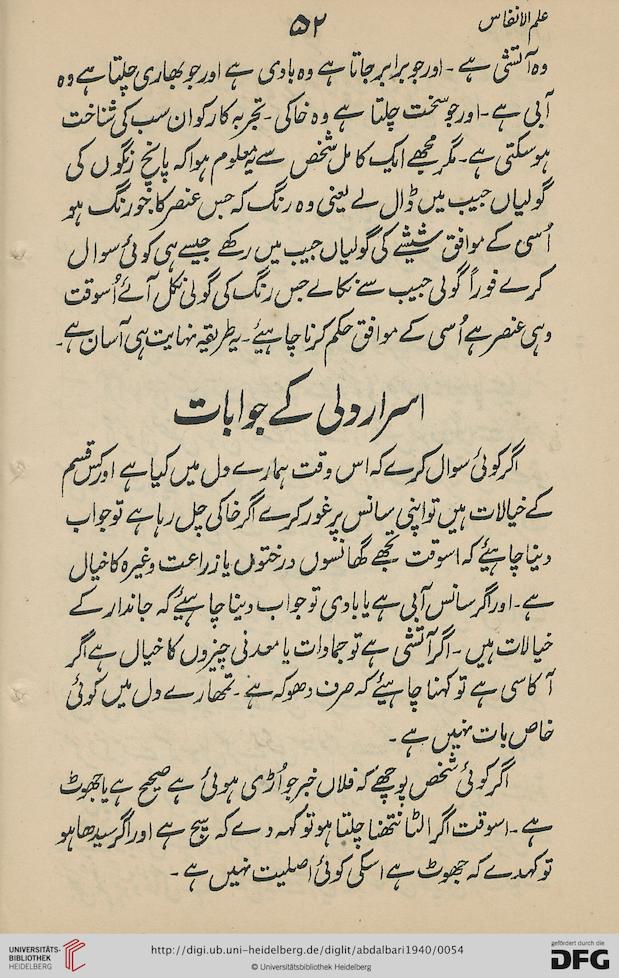 علم الانفاس
۵۲
وہ آتشی ہے ۔ اور جو برابر جاتا ہے وہ بادی ہے اور جو بھاری چلتا ہے وہ
آبی ہے ۔ اور جو سخت چلتا ہے وہ خاکی ۔ تجربہ کار کو ان سب کی شناخت
ہوسکتی ہے ۔ مگر مجھے ایک کامل شخص سے یہ معلوم ہوا کہ پانچ رنگوں کی
گولیاں جیب میں ڈال لے یعنی وہ رنگ کہ جس عنصر کا جو رنگ ہو
اُسی کے موافق شیشے کی گولیاں جیب میں رکھے جیسے ہی کوئی سوال
کرے فوراً گولی جیب سے نکالے جس رنگ کی گولی نکل آئے اُسوقت
وہی عنصر ہے اُسی کے موافق حکم کرنا چاہیئے ۔ یہ طریقہ نہایت ہی آسان ہے ۔
اسرار دلی کے جوابات
اگر کوئی سوال کرے کہ اس وقت ہمارے دل میں کیا ہے اور کس قسم
کے خیالات ہیں تو اپنی سانس پر غور کرے اگر خاکی چل رہا ہے تو جواب
دینا چاہیئے کہ اسوقت تجھے گھانسوں درختوں یا زراعت وغیرہ کا خیال
ہے ۔ اور اگر سانس آبی ہے یا بادی تو جواب دینا چاہیئے کہ جاندار کے
خیالات ہیں ۔ اگر آتشی ہے تو جمادات یا معدنی چیزوں کا خیال ہے اگر
آکاسی ہے تو کہنا چاہیئے کہ صرف دھوکہ ہے ۔ تمھارے دل میں کوئی
خاص بات نہیں ہے ۔
اگر کوئی شخص پوچھے کہ فلاں خبر جو اُڑی ہوئی ہے صحیح ہے یا جھوٹ
ہے ۔ اسوقت اگر الٹا نتھنا چلتا ہو تو کہہ دے کہ سچ ہے اور اگر سیدھا ہو
تو کہدے کہ جھوٹ ہے اسکی کوئی اصلیت نہیں ہے ۔
UNIVERSITÄTS-
BIBLIOTHEK
HEIDELBERG
http://digi.ub.uni-heidelberg.de/diglit/abdalbari1940/0054
© Universitätsbibliothek Heidelberg
gefördert durch die
DFG